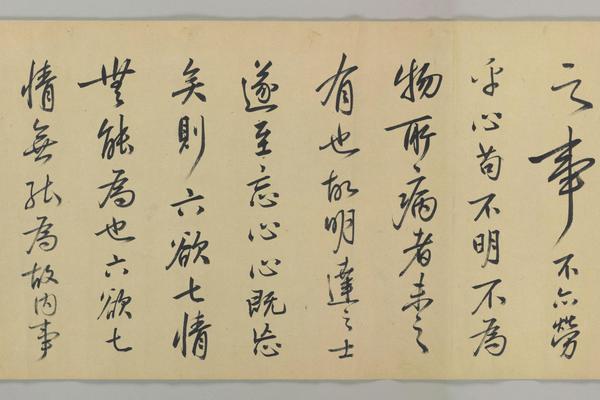 之事不亦勞
乎心苟不明不為
物所病者未之
有也故明達之士
遂至忘心心既忘
矣則六欲七情
無能為也六欲七
情無能為故內事